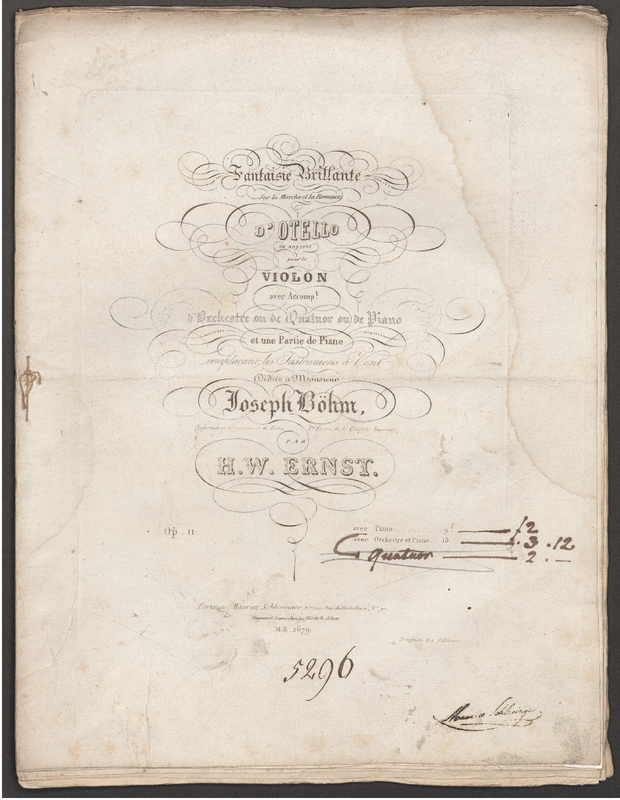 Fantaisie Brillante
Sur la Marche et la Romance
D'OTELLO
DE ROSSINI
pour le
VIOLON
avec Accompt.
d'Orchestre ou de Quatuor ou de Piano
et une Partie de Piano
remplaçant les Instrumens à Vent
Dédiée à Monsieur
Joseph Böhm,
PAR
H.W. ERNST.
Op. 11
avec Piano 9f 12
avec Orchestre et Piano 15 3.12
Quatuor 2.—
Paris, Maurice Schlesinger, Rue Richelieu, No. 97
M.S. 2679.
Propriété des Editeurs
5296
Maurice Schlesinger